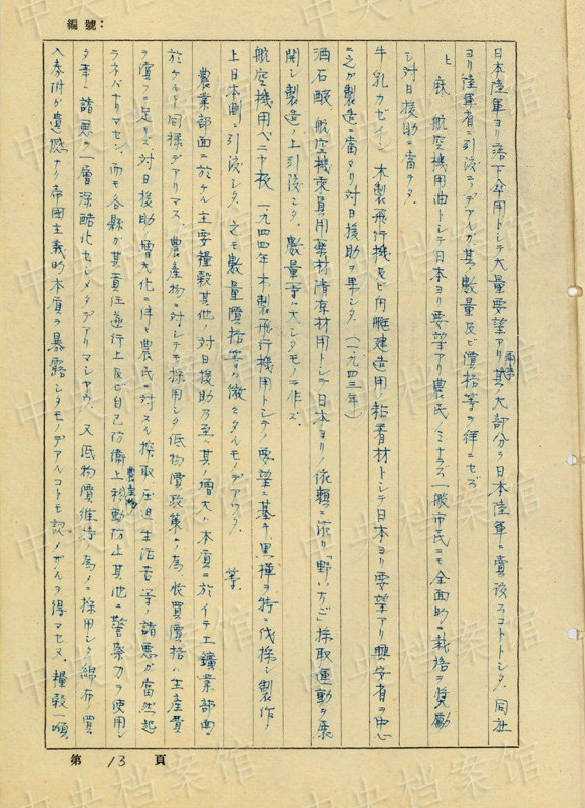 編號：
日本陸軍ヨリ落下傘用トシテ大量要望アリ其ノ大部分ヲ日本陸軍ニ賣後スコトトシタ、同社
ヨリ陸軍省ニ引渡シタノデアルガ其ノ數量及ビ價格等ヲ得ニセズ
航空機用油トシテ日本ヨリ要望アリ農民ノミナラズ一般市民ニモ全面的ニ栽培ヲ奨勵
シ對日援助ニ當ッタ、
牛乳カゼイン 木製飛行機及ビ内艇建造用ノ粘着材トシテ日本ヨリ要望アリ興安省ヲ中心
ニ之ガ製造ニ當タリ對日援助ヲ果シタ、（一九四三年）
酒石酸、航空機乘員用藥材清凉材用トシテ日本ヨリノ依頼ニ依リ「野いちご」採取運動ヲ展
開シ製造ノ上引渡シタ、數量ハ大シタモノニ非ズ
航空機用ベニヤ板 一九四四年木製飛行機用トシテノ要望ニ基キ黒樺ヲ特ニ伐採シ製作ノ
上日本側ニ引渡シタ、之モ數量價格等ハ微々タルモノデアッタ、 等、
農業部面ニ於ケル主要糧穀其他ノ對日援助乃至其ノ增大ハ本質ニ於イテ工鑛業部面ニ
於ケルト同様デアリマス、農産物ニ対シテモ採用シタ低物價政策ノ為收買價格ハ生産費
ヲ償フニ足ラズ對日援助ノ增大化ニ伴ヒ農民ニ対スル搾取圧迫生活苦等ノ諸悪ガ當然起
ラネバナリマセン、而モ各縣ガ其責任遂行上及ビ自己防衛上農産物移動防止其他ニ警察力ヲ使用シ
タ事ハ諸悪ヲ一層深酷化セシメタデアリマシャウ、又低物價維持ノ為ノニ採用シタ綿布買
入奉附ガ遺憾ナク帝国主義的本質ヲ暴露シタモノデアルコトモ認メザルヲ得マセヌ、糧穀一噸
第 13 頁
中央档案馆